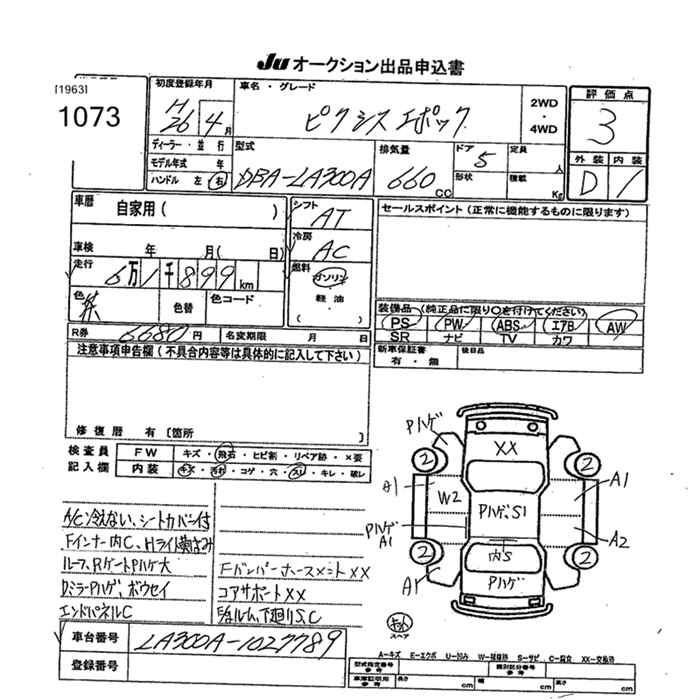 Ju オークション出品申込書
[1963]
1073
初度登録年月
H26 4月
車名・グレード
ピクシス エポック
2WD
・
4WD
評価点
3
ディーラー・並行
モデル年式 年
ハンドル 左・右
型式
DBA-LA300A
排気量
660 CC
ドア 5
形状
定員 人
積載 Kg
外装 内装
D 1
車歴 自家用( )
シフト AT
セールスポイント(正常に機能するものに限ります)
車検 年 月( 日)
冷房 AC
走行 6万1千899km
燃料 ガソリン
軽油
( )
色 茶
色替
色コード
装備品(純正品に限り○を付けてください)
PS PW ABS エアB AW
SR ナビ TV カワ
R券 6680円
名変期限 月 日
新車保証書
有・無
後日品
注意事項申告欄(不具合内容等は具体的に記入して下さい)
修復歴 有[箇所 ]
検査員
記入欄
FW キズ・飛石・ヒビ割・リペア跡・×要
内装 キズ・汚れ・コゲ・穴・スレ・キレ・破レ
A/C冷えない、シートカバー付
Fインナー内C、Hライト黄ばみ
ルーフ、RゲートPハゲ大
DミラーPハゲ、ボウセイ
エンドパネルC
FバンパーホースメントXX
コアサポートXX
下廻りS、C
Pハゲ
XX
2
2
A1
W2
Pハゲ、S1
A1
Pハゲ
A1
A2
内S
2
2
A1
Pハゲ
スペア
車台番号 LA300A-1027789
登録番号
A=キズ E=エクボ U=凹み W=補修跡 S=サビ C=腐食 XX=交換済
型式指定番号
参考
類別区分番号
参考
車庫証明用
参考
長さ cm 幅 cm 高さ cm